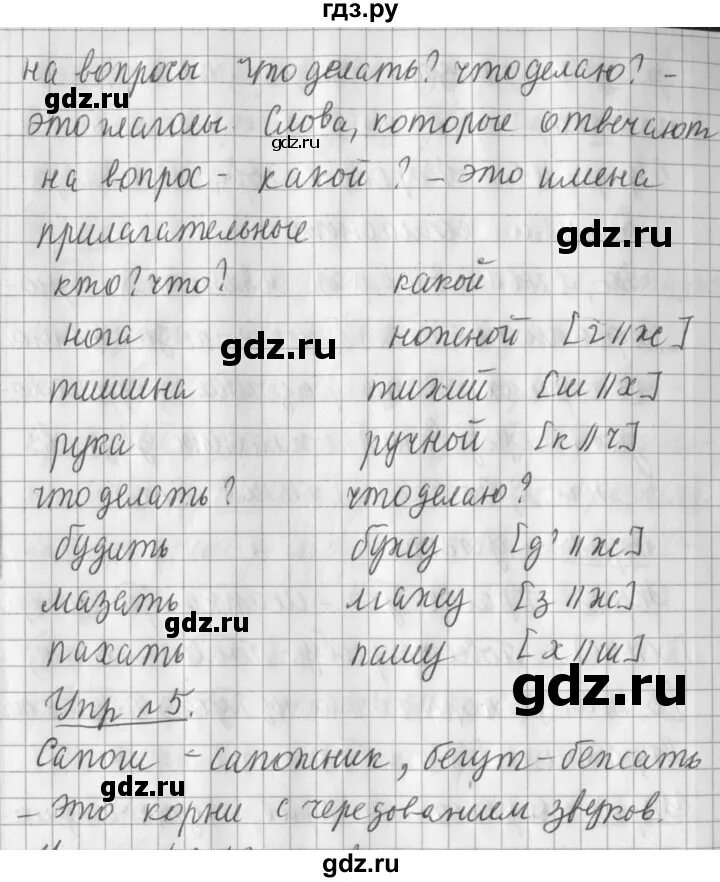 гдз.ру
на вопросы что делать? что делаю? -
gdz.ru
gdz.ru
это глаголы. Слова, которые отвечают
на вопрос - какой? - это имена
gdz.ru
прилагательные
кто? что? какой
gdz.ru
нога ножной [г//ж]
тишина тихий [ш//х]
рука ручной [к//ч]
что делать? что делаю?
будить бужу [д'//ж]
мазать мажу [з//ж]
gdz.ru
пахать пашу [х//ш]
gdz.ru
Упр №5.
Сапоги - сапожник, бегут - бежать
gdz.ru
- это корни с чередованием звуков.
gdz.ru